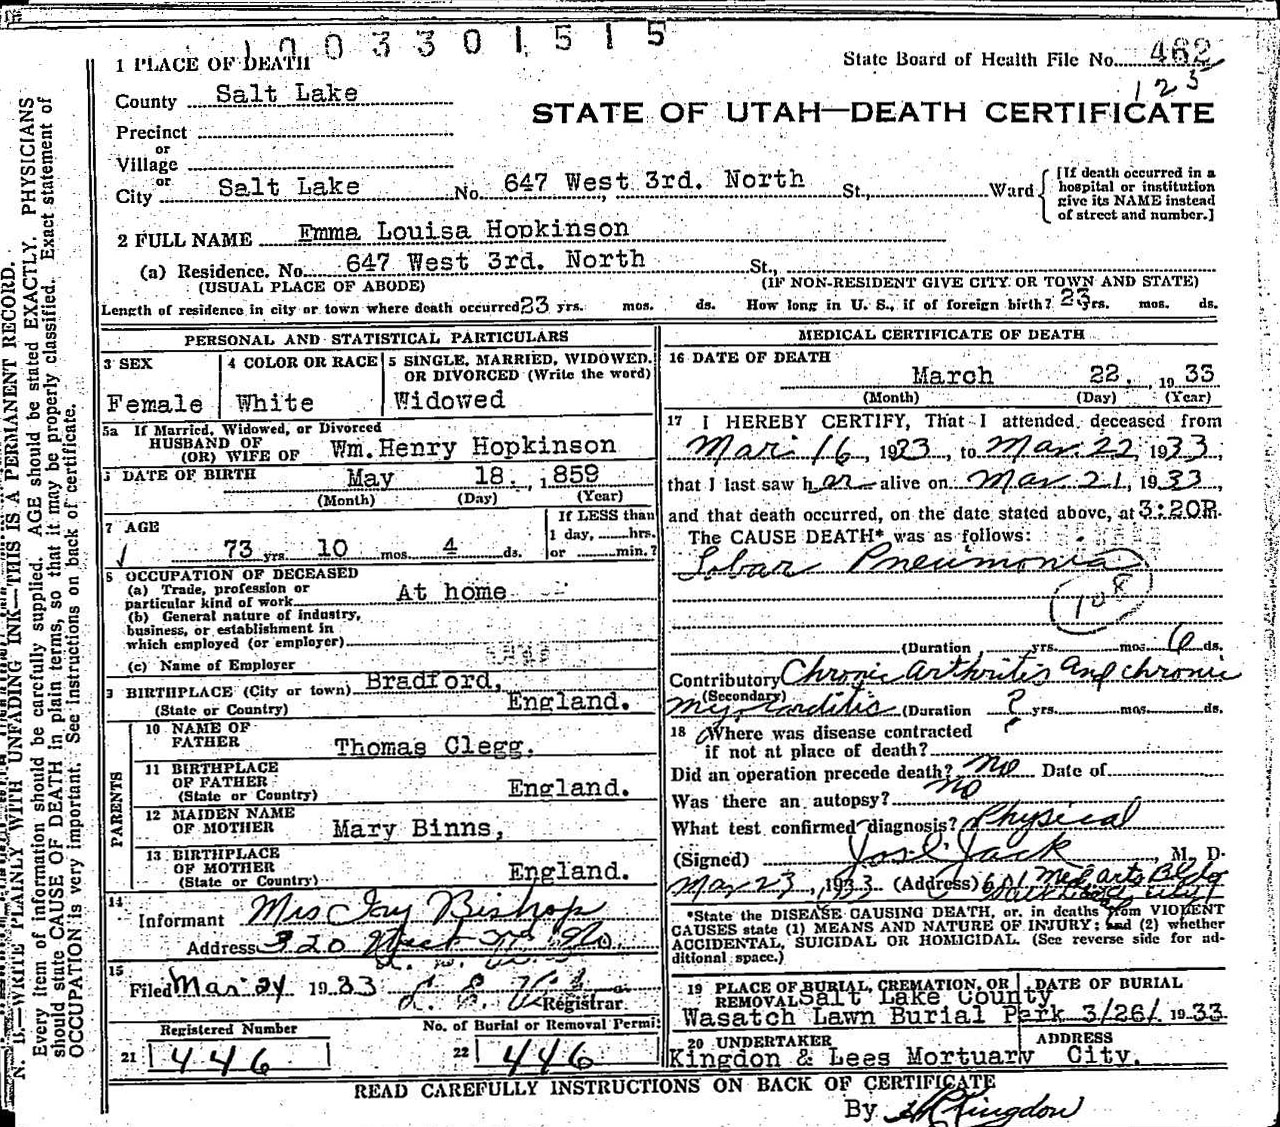 1003301515
State Board of Health File No. 462
125
1 PLACE OF DEATH
County Salt Lake
STATE OF UTAH—DEATH CERTIFICATE
Precinct
or
Village
or
City Salt Lake No. 647 West 3rd. North St., Ward
[If death occurred in a hospital or institution give its NAME instead of street and number.]
2 FULL NAME Emma Louisa Hopkinson
(a) Residence. No. 647 West 3rd. North St.,
(USUAL PLACE OF ABODE) (IF NON-RESIDENT GIVE CITY OR TOWN AND STATE)
Length of residence in city or town where death occurred 23 yrs. mos. ds. How long in U. S., if of foreign birth? 23 yrs. mos. ds.
PERSONAL AND STATISTICAL PARTICULARS
3 SEX
Female
4 COLOR OR RACE
White
5 SINGLE, MARRIED, WIDOWED, OR DIVORCED (Write the word)
Widowed
5a If Married, Widowed, or Divorced
HUSBAND OF
(OR) WIFE OF Wm. Henry Hopkinson
DATE OF BIRTH May 18. 1859
(Month) (Day) (Year)
7 AGE
73 yrs. 10 mos. 4 ds.
If LESS than
1 day, hrs.
or min.?
8 OCCUPATION OF DECEASED
(a) Trade, profession or
particular kind of work At home
(b) General nature of industry,
business, or establishment in
which employed (or employer)
(c) Name of Employer
9 BIRTHPLACE (City or town) Bradford,
(State or Country) England.
PARENTS
10 NAME OF
FATHER Thomas Clegg.
11 BIRTHPLACE
OF FATHER England.
(State or Country)
12 MAIDEN NAME
OF MOTHER Mary Binns,
13 BIRTHPLACE
OF MOTHER England.
(State or Country)
14
Informant Mrs Jay Bishop
Address 320 No.
15
Filed Mar 24 1933
Registrar.
Registered Number
21 446
No. of Burial or Removal Permit
22 446
MEDICAL CERTIFICATE OF DEATH
16 DATE OF DEATH
March 22. 1933
(Month) (Day) (Year)
17 I HEREBY CERTIFY, That I attended deceased from
Mar 16, 1933, to Mar 22, 1933,
that I last saw her alive on Mar 21, 1933,
and that death occurred, on the date stated above, at 3:20P.m.
The CAUSE DEATH* was as follows:
Lobar Pneumonia
108
(Duration yrs. mos. 6 ds.
Contributory Chronic Arthritis and chronic
(Secondary)
myocarditis (Duration ? yrs. mos. ds.
18 Where was disease contracted
if not at place of death? ?
Did an operation precede death? No Date of
Was there an autopsy? No
What test confirmed diagnosis? Physical
(Signed) Jos E Jack, M. D.
Mar 23, 1933 (Address) 601 Med arts Bldg
*State the DISEASE CAUSING DEATH, or, in deaths from VIOLENT
CAUSES state (1) MEANS AND NATURE OF INJURY: and (2) whether
ACCIDENTAL, SUICIDAL OR HOMICIDAL. (See reverse side for ad-
ditional space.)
19 PLACE OF BURIAL, CREMATION, OR
REMOVAL Salt Lake County
Wasatch Lawn Burial Park
DATE OF BURIAL
3/26/ 1933
20 UNDERTAKER
Kingdon & Lees Mortuary
ADDRESS
City.
READ CAREFULLY INSTRUCTIONS ON BACK OF CERTIFICATE
By Kingdon
N. B.—WRITE PLAINLY WITH UNFADING INK—THIS IS A PERMANENT RECORD.
Every item of information should be carefully supplied. AGE should be stated EXACTLY. PHYSICIANS
should state CAUSE OF DEATH in plain terms, so that it may be properly classified. Exact statement of
OCCUPATION is very important. See instructions on back of certificate.